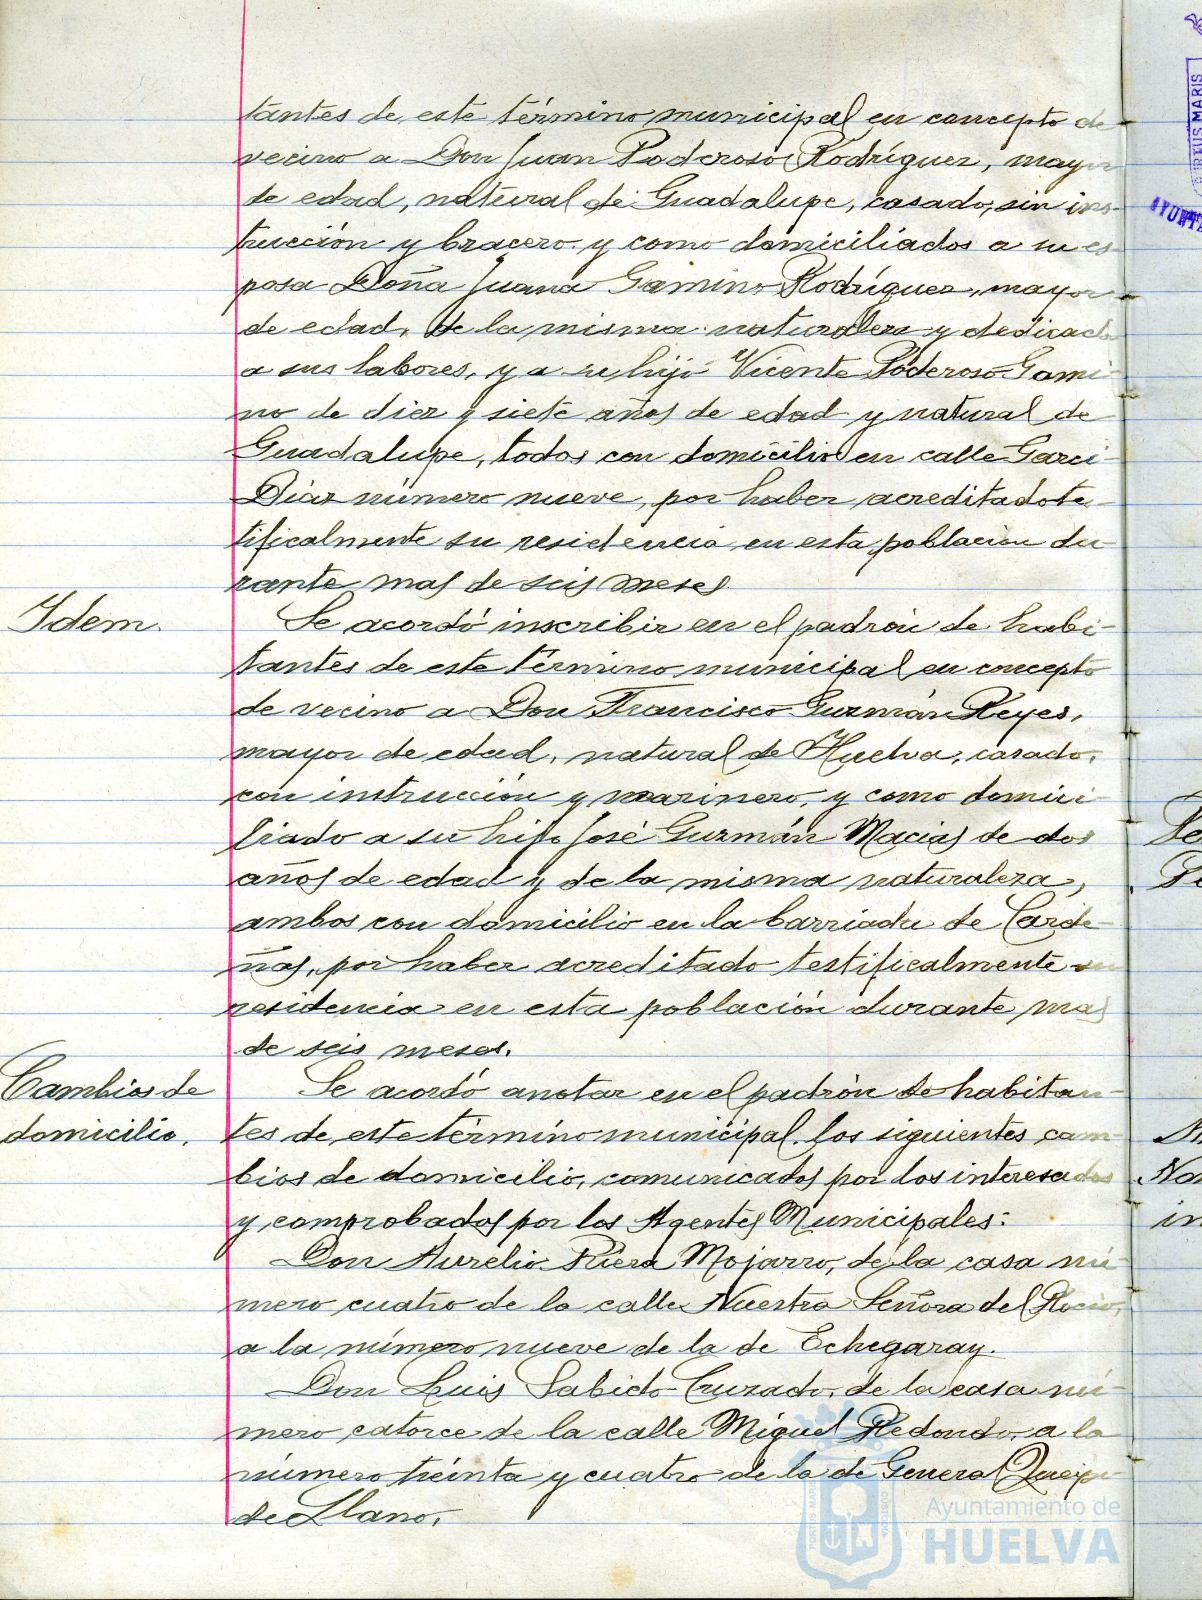 tantes de este término municipal en concepto de
vecino a Don Juan Poderoso Rodríguez, mayor
de edad, natural de Guadalupe, casado, sin ins-
trucción y bracero y como domiciliados a su es-
posa Doña Juana Gamino Rodríguez, mayor
de edad, de la misma naturaleza y dedicada
a sus labores, y a su hijo Vicente Poderoso Gami-
no de diez y siete años de edad y natural de
Guadalupe, todos con domicilio en calle Garci
Diaz número nueve, por haber acreditado te-
tificalmente su residencia en esta población du-
rante mas de seis meses.
Idem.
Se acordó inscribir en el padrón de habi-
tantes de este término municipal en concepto
de vecino a Don Francisco Guzmán Reyes,
mayor de edad, natural de Huelva, casado,
con instrucción y marinero, y como domici-
liado a su hijo José Guzmán Macias de dos
años de edad y de la misma naturaleza,
ambos con domicilio en la barriada de Carde-
ñas, por haber acreditado testificalmente su
residencia en esta población durante mas
de seis meses.
Cambios de
domicilio.
Se acordó anotar en el padrón de habitan-
tes de este término municipal los siguientes cam-
bios de domicilio, comunicados por los interesados
y comprobados por los Agentes Municipales:
Don Aurelio Riera Mojarro, de la casa nú-
mero cuatro de la calle Nuestra Señora del Rocio,
a la número nueve de la de Echegaray.
Don Luis Sabido Cruzado, de la casa nú-
mero catorce de la calle Miguel Redondo, a la
número treinta y cuatro de la de General Queipo
de Llano.
Ayuntamiento de
HUELVA